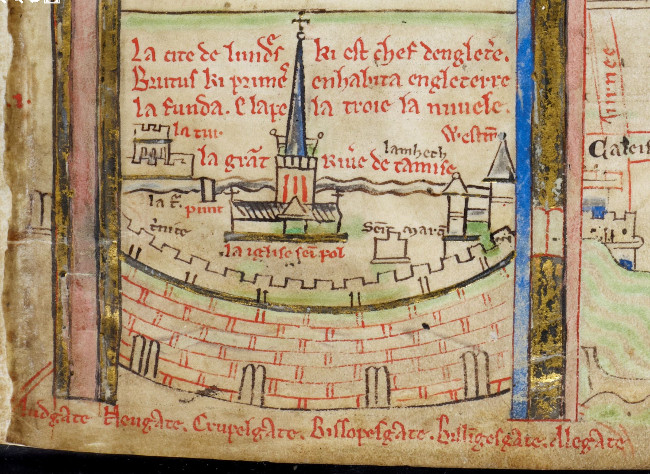 La cite de lundres ki est chef dengletere.
Brutus ki primes enhabita engleterre
la funda. E lapela troie la nuvele.
la tur.
Westm
lambeth
la grant rivere de tamise
punt
la t'nite
seint martin
la iglise seint pol
Ludgate Neugate. Crupelgate. Bissopesgate. Billigesgate. Allegate
Caleis